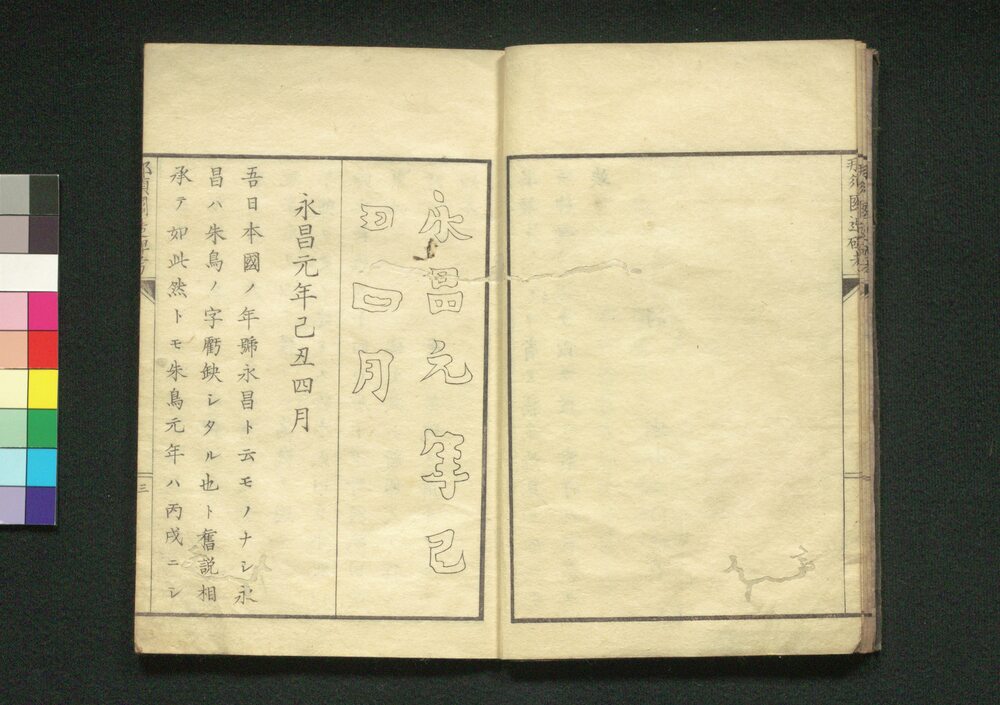 那須國造碑考
永昌元年己
丑四月
永昌元年己丑四月
吾日本國ノ年號永昌ト云モノナシ永
昌ハ朱鳥ノ字虧缺シタル也ト舊説相
承テ如此然トモ朱鳥元年ハ丙戌ニシ
三